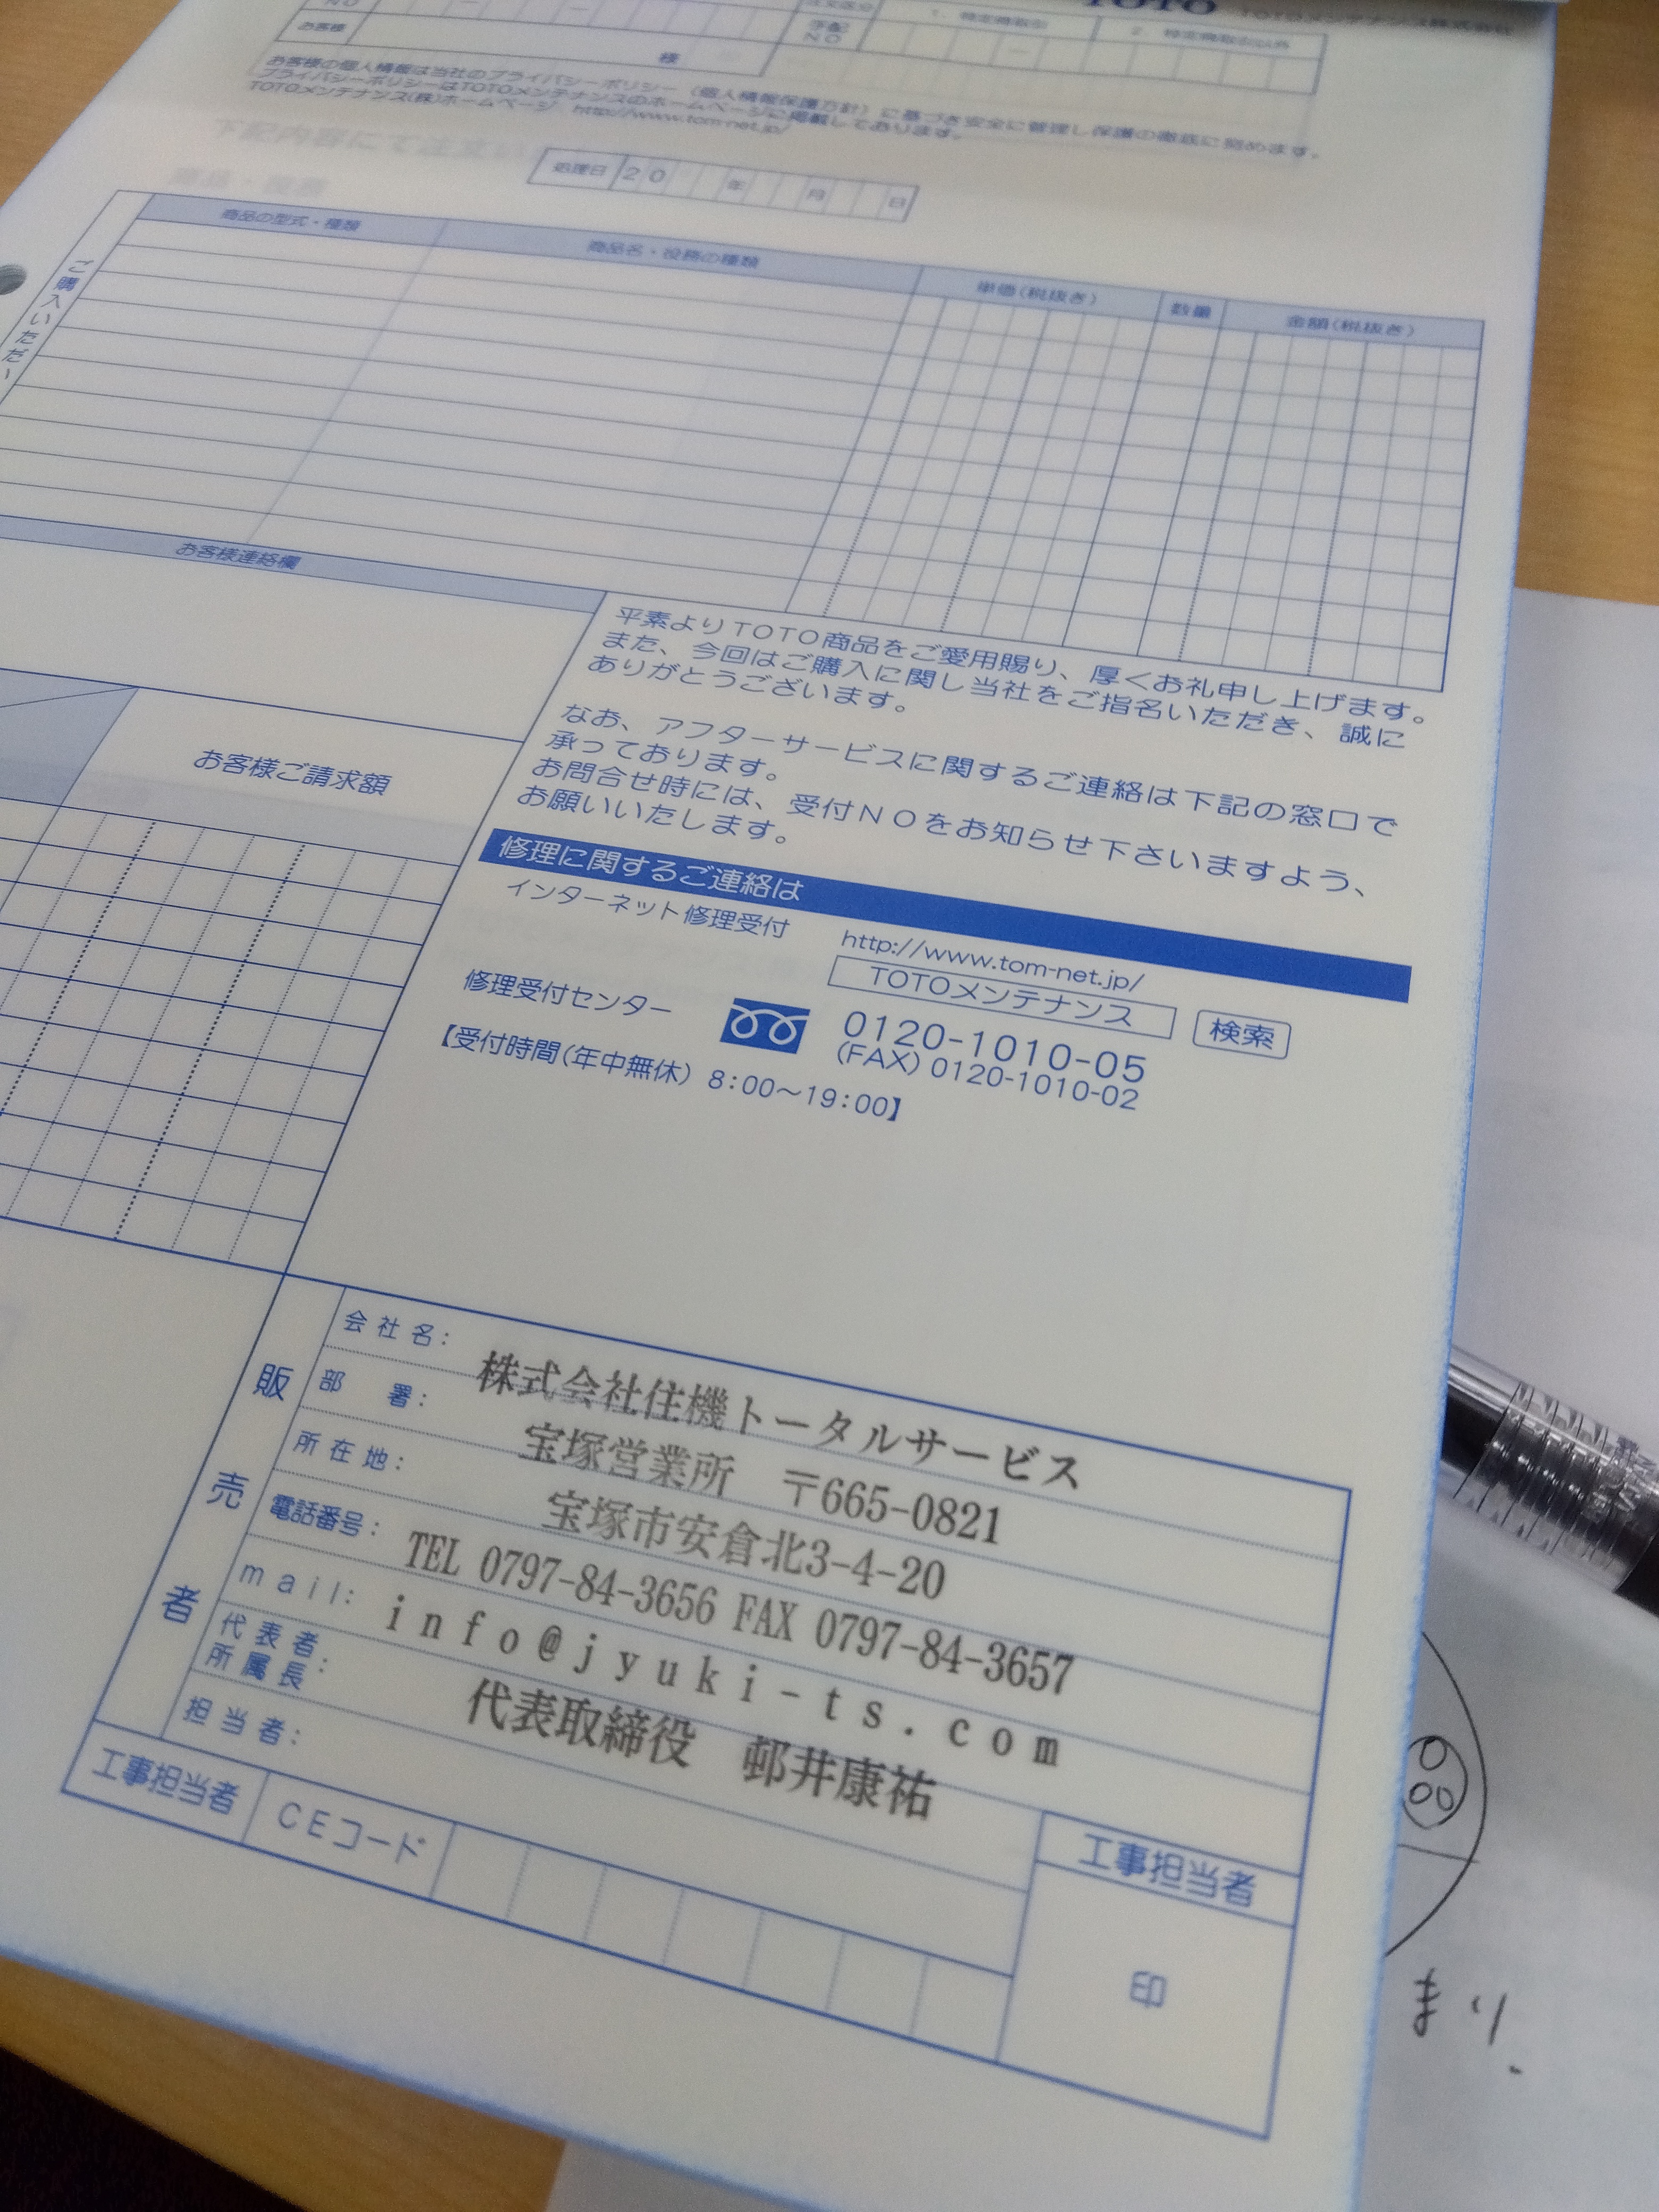 TOTO TOTOメンテナンス株式会社
NO
お客様 様
手配NO
1. 特定商取引
2. 特定商取引以外
お客様の個人情報は当社のプライバシーポリシー（個人情報保護方針）に基づき安全に管理し保護の徹底に努めます。
プライバシーポリシーはTOTOメンテナンスのホームページに掲載しております。
TOTOメンテナンス(株)ホームページ http://www.tom-net.jp/
下記内容にて注文
処理日 20 年 月 日
商品の型式・種類 商品名・役務の種類 単価(税抜き) 数量 金額(税抜き)
ご購入いただ
お客様連絡欄
平素よりTOTO商品をご愛用賜り、厚くお礼申し上げます。
また、今回はご購入に関し当社をご指名いただき、誠に
ありがとうございます。
なお、アフターサービスに関するご連絡は下記の窓口で
承っております。
お問合せ時には、受付NOをお知らせ下さいますよう、
お願いいたします。
お客様ご請求額
修理に関するご連絡は
インターネット修理受付 http://www.tom-net.jp/
TOTOメンテナンス 検索
修理受付センター 0120-1010-05
(FAX) 0120-1010-02
【受付時間(年中無休) 8:00〜19:00】
販売者
会社名: 株式会社住機トータルサービス
部署: 宝塚営業所 〒665-0821
所在地: 宝塚市安倉北3-4-20
電話番号: TEL 0797-84-3656 FAX 0797-84-3657
mail: info@jyuki-ts.com
代表者所属長: 代表取締役 邨井康祐
担当者:
工事担当者 CEコード
工事担当者
印
まり